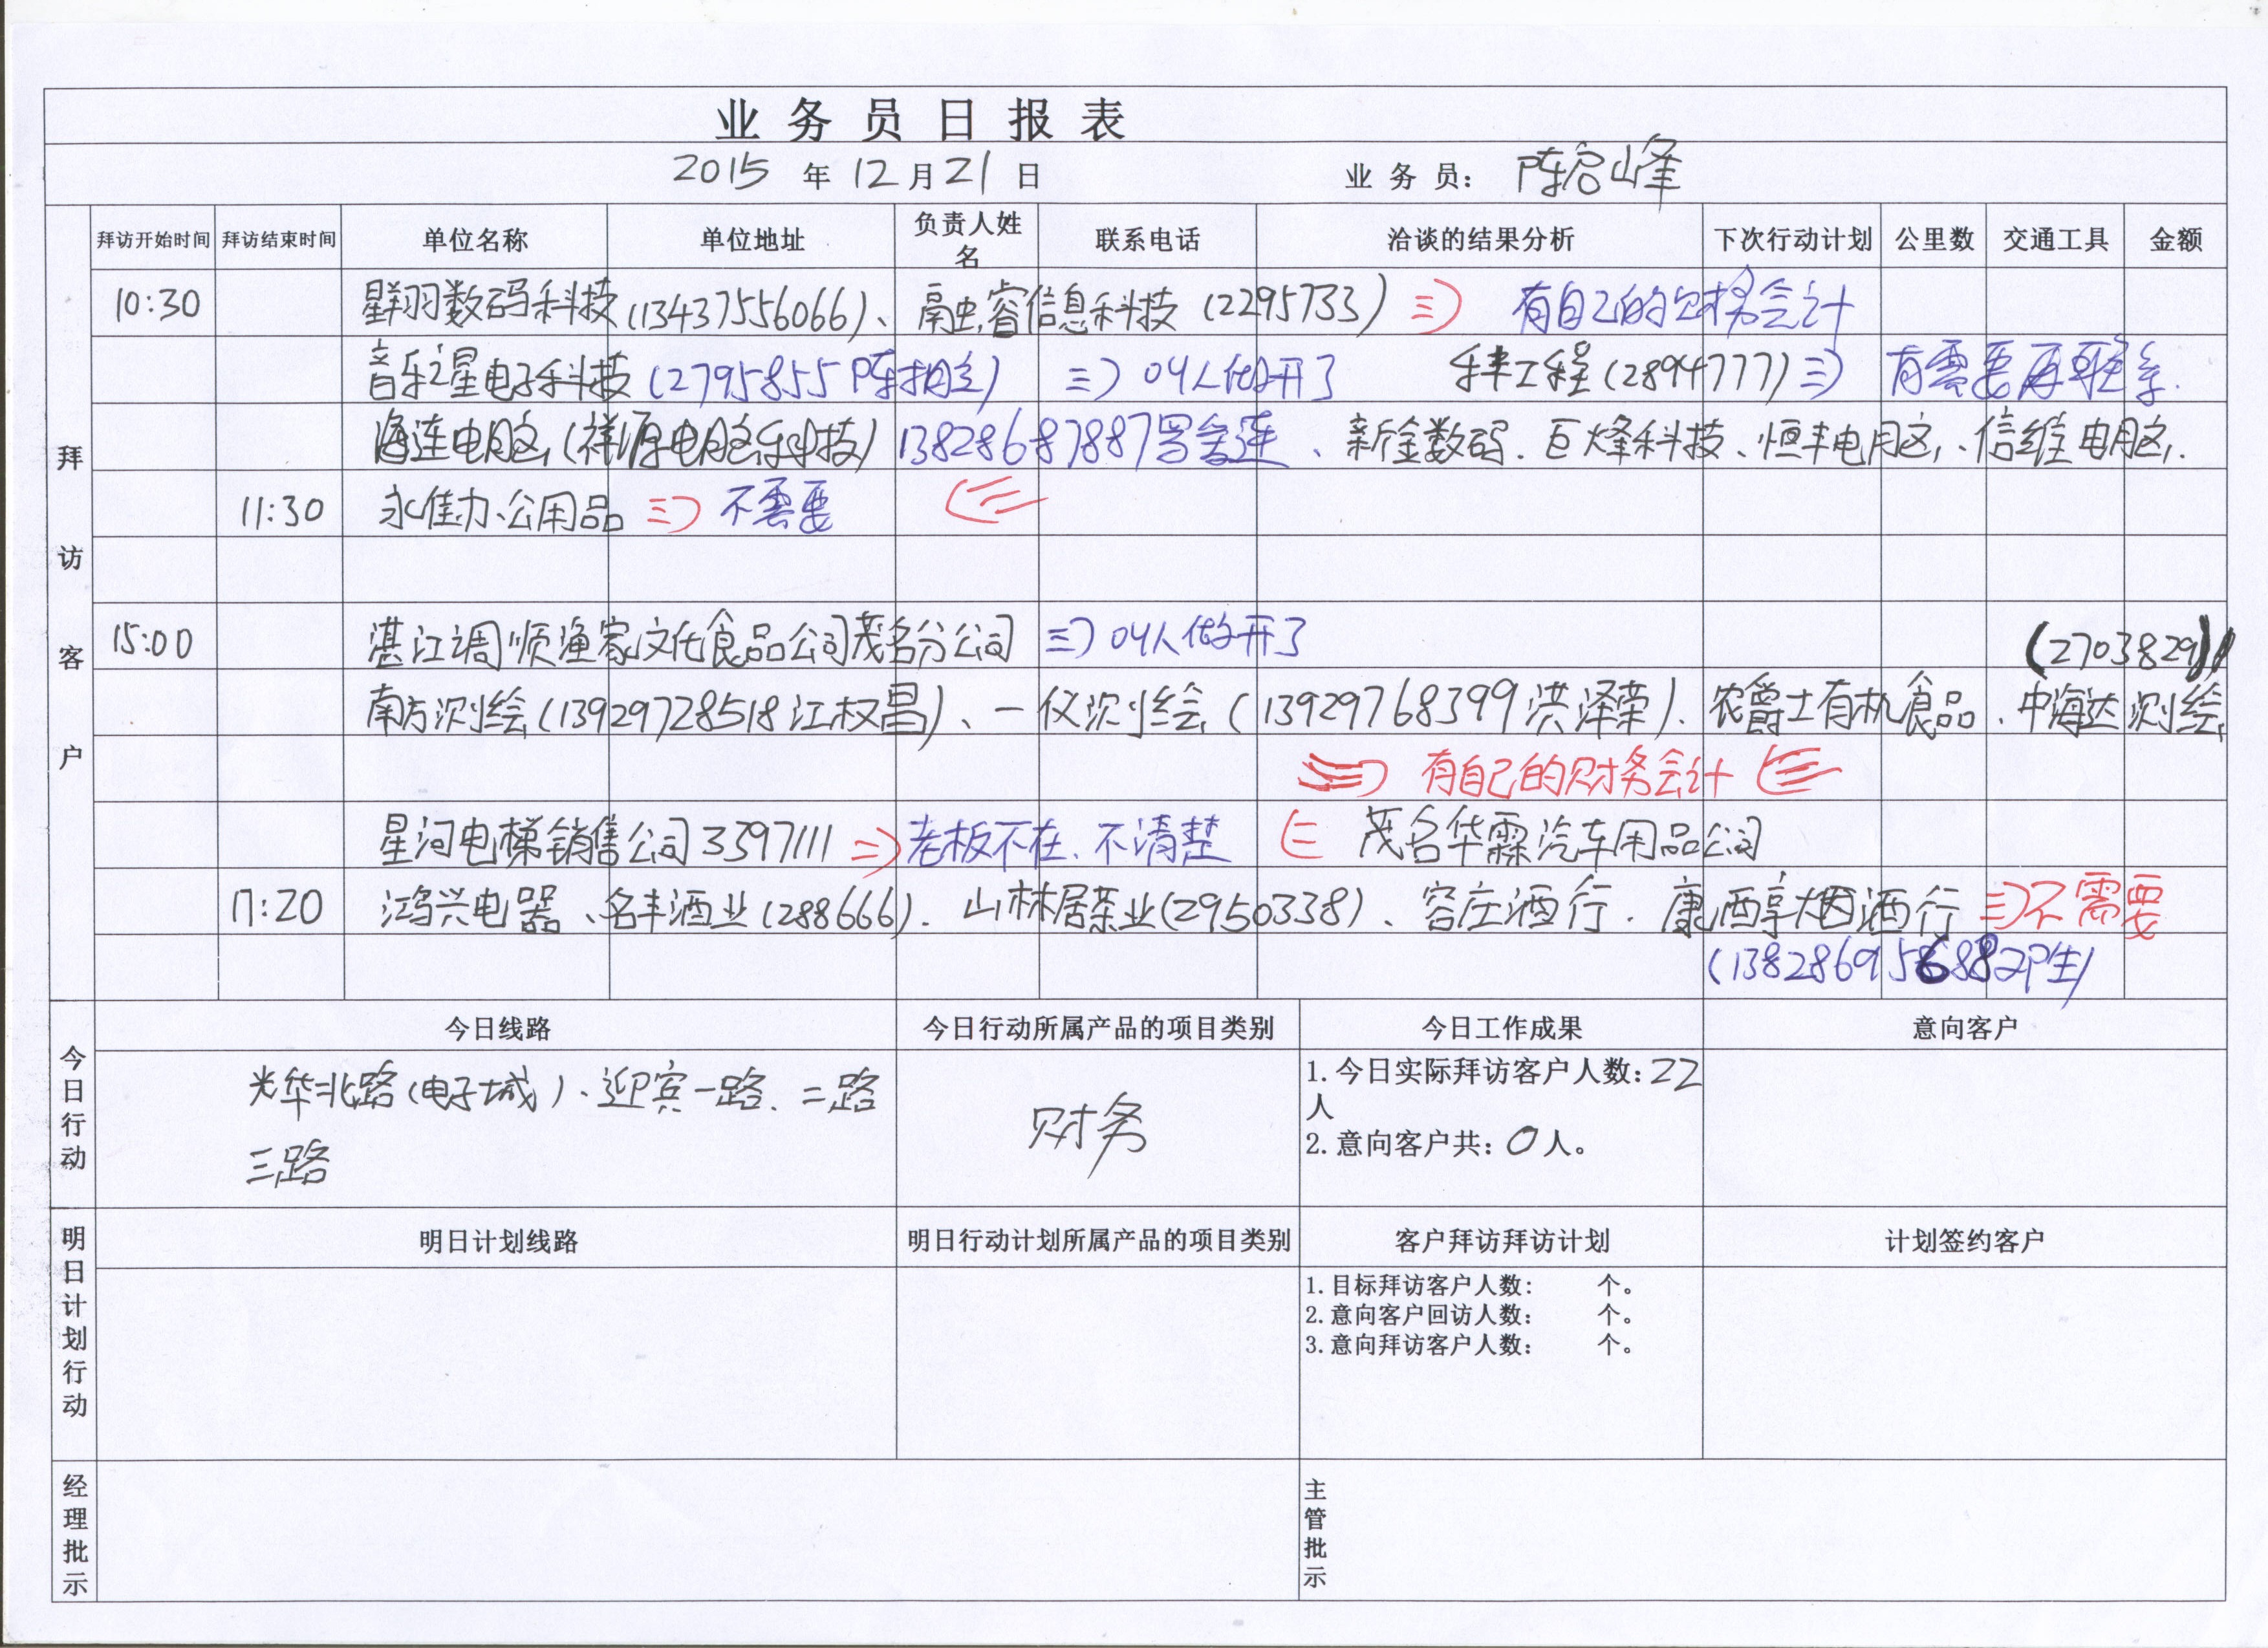 业务员日报表
2015 年 12 月 21 日 业务员: 陈容峰
拜访客户
拜访开始时间 拜访结束时间 单位名称 单位地址 负责人姓名 联系电话 洽谈的结果分析 下次行动计划 公里数 交通工具 金额
10:30 群羽数码科技(13437556066)、融睿信息科技(2295733) 有自己的财务会计
音乐之星电子科技(2795855 陈相立) 04人做开了 丰工程(2894777) 有需要再联系.
海连电脑(祥源电脑科技)13828687887罗金连、新金数码.巨烽科技、恒丰电脑、信维电脑.
11:30 永佳办公用品 不需要
15:00 湛江调顺渔家文化食品公司茂名分公司 04人做开了 (2703829)
南方测绘(13929728518江权昌)、一仪测绘(13929768399洪泽荣)、农爵士有机食品、中海达测绘
有自己的财务会计
星河电梯销售公司3397111 老板不在、不清楚 茂名华霖汽车用品公司
17:20 鸿兴电器、名丰酒业(288666).山林居茶业(2950338)、容庄酒行.康西醇烟酒行 不需要
今日行动
今日线路 今日行动所属产品的项目类别 今日工作成果 意向客户
光华北路(电子城)、迎宾一路、二路
三路
财务
1.今日实际拜访客户人数:22
人
2.意向客户共:0人。
明日计划行动
明日计划线路 明日行动计划所属产品的项目类别 客户拜访拜访计划 计划签约客户
1.目标拜访客户人数: 个。
2.意向客户回访人数: 个。
3.意向拜访客户人数: 个。
经理批示 主管批示